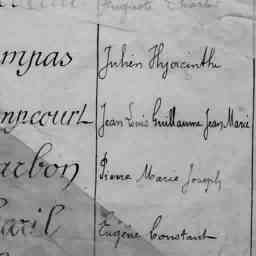 Auguste Charles
mpas Julien Hyacinthe
npcourt Jean Louis Guillaume Jean Marie
arbon Pierre Marie Joseph
aril Eugène Constant